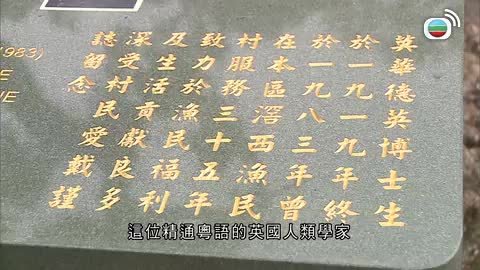 英華德英博士生
於一九一九年終
於一九八三年曾
在本區滘西漁民
村服務三十五年
致力於漁民福利
及生活貢獻良多
深受村民愛戴謹
誌留念
1983)
E
NE
這位精通粵語的英國人類學家